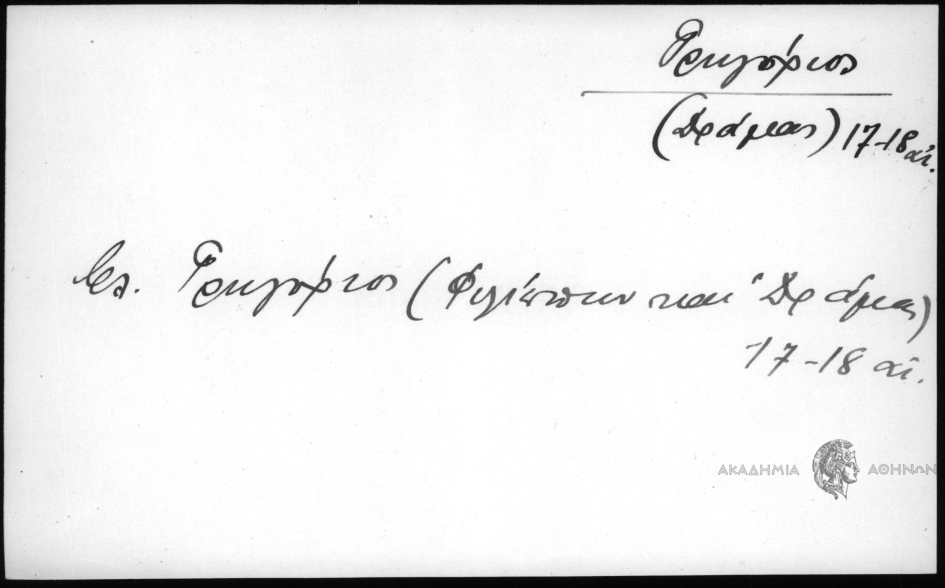 Γρηγόριος
(Δράμας) 17-18 αἰ.
βλ. Γρηγόριος (Φιλίππων καὶ Δράμας)
17-18 αἰ.
ΑΚΑΔΗΜΙΑ ΑΘΗΝΩΝ